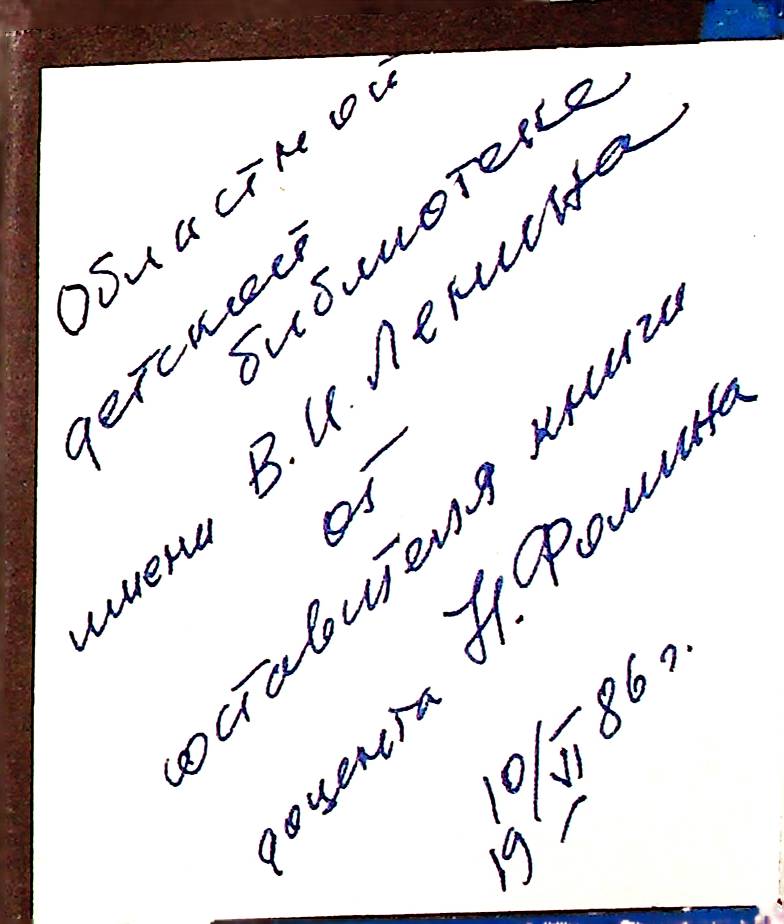 Областной
детской
библиотеке
имени В. И. Ленина
от
составителя книги
доцента Н. Фомина
10/VI 86 г.
19